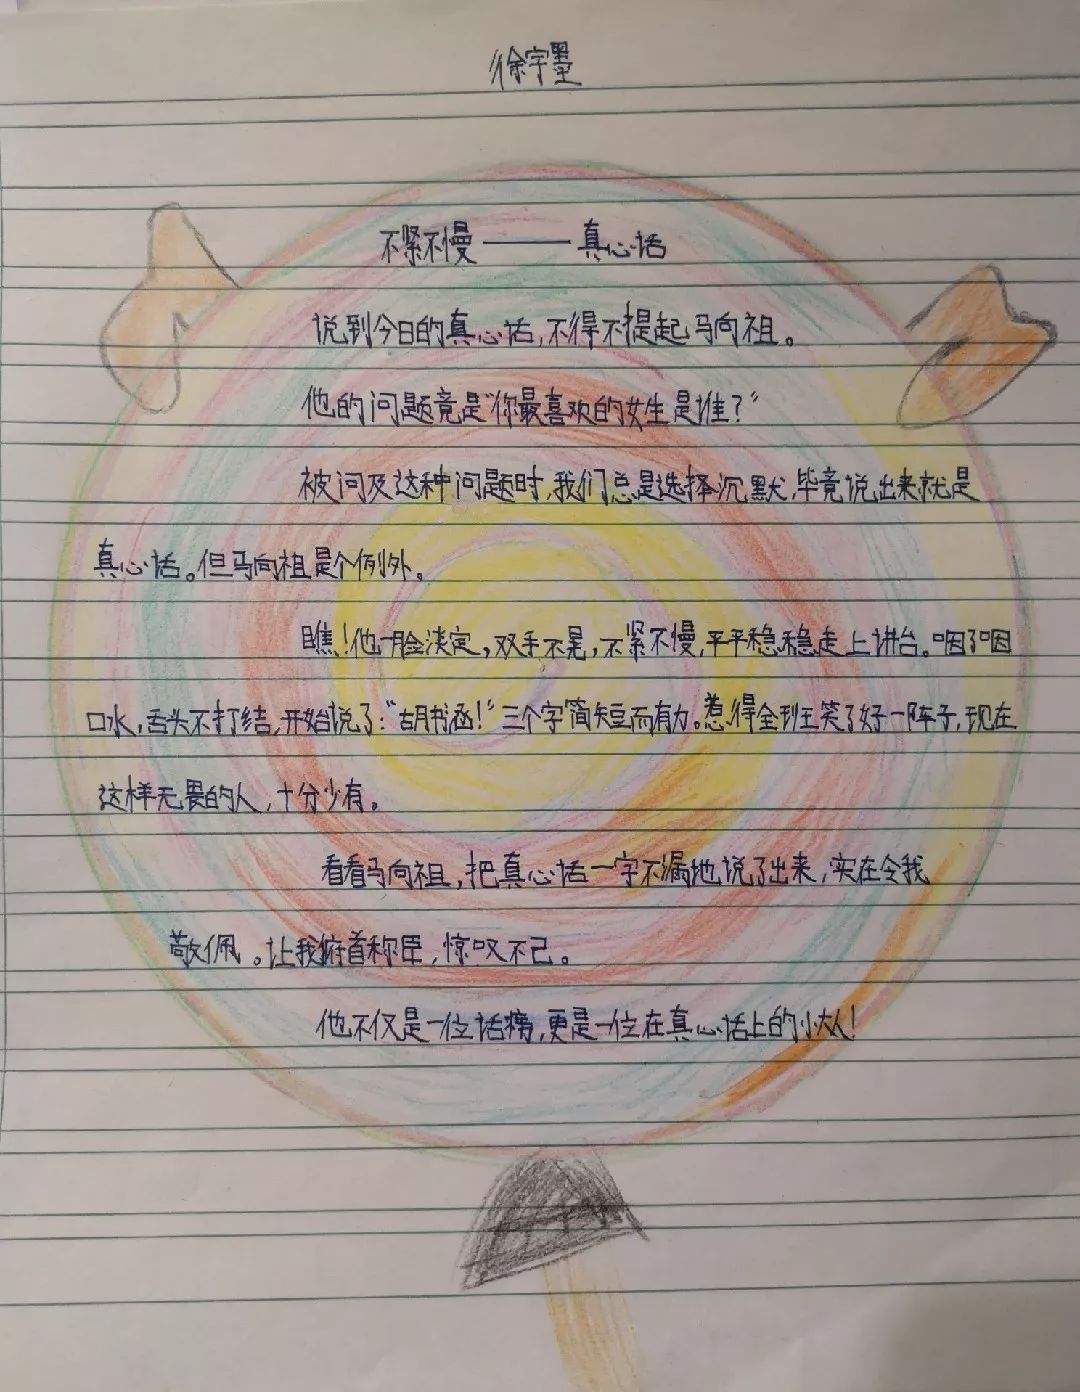 徐宇墨
不紧不慢——真心话
说到今日的真心话,不得不提起马向祖。
他的问题竟是“你最喜欢的女生是谁?”
被问及这种问题时,我们总是选择沉默,毕竟说出来就是
真心话。但马向祖是个例外。
瞧!他一脸淡定,双手不晃,不紧不慢,平平稳稳走上讲台。咽了咽
口水,舌头不打结,开始说了:“胡书涵!”三个字简短而有力。惹得全班王笑了好一阵子,现在
这样无畏的人,十分少有。
看看马向祖,把真心话一字不漏地说了出来,实在令我
敬佩。让我俯首称臣,惊叹不已。
他不仅是一位话痨,更是一位在真心话上的小大人!